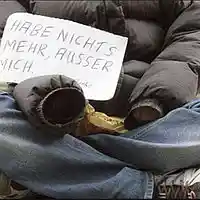 HABE NICHTS
MEHR, AUSSER
MICH